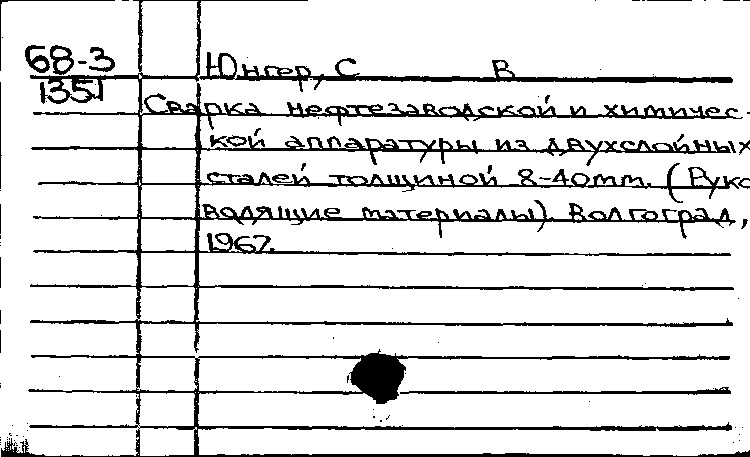 68-3
1351
Юнгер, С В
Сварка нефтезаводской и химичес-
кой аппаратуры из двухслойных
сталей толщиной 8-40mm. (Руко
водящие материалы). Волгоград,
1967.